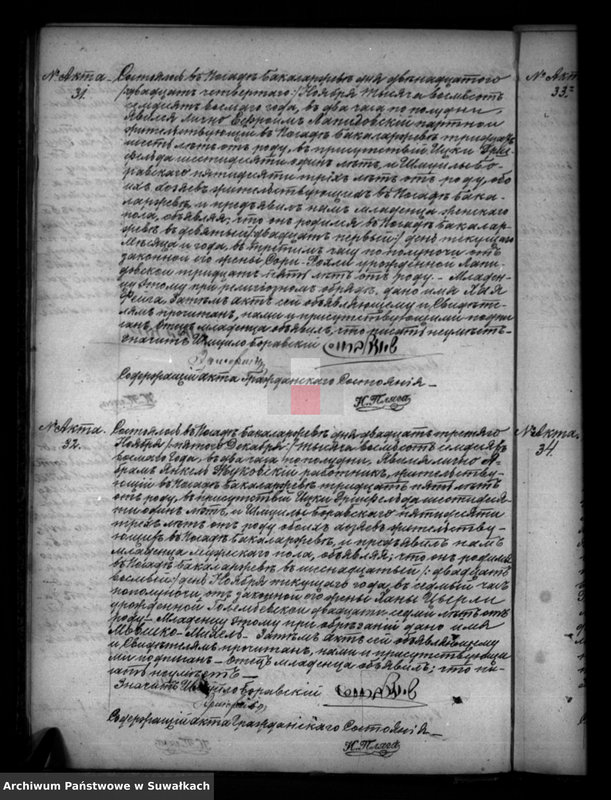 № Акта
31.
Состоялся въ Посадѣ Бакаларжевѣ дня двѣнадцатого
/двадцать четвертаго/ Ноября тысяча восемьсотъ
семьдесятъ восьмаго года, въ два часа по полудни
Явился лично
жительствующій въ Посадѣ Бакаларжевѣ тридцать
шесть лѣтъ отъ роду, въ присутствіи Ицки
шестидесяти одинъ лѣтъ и Шмуйлы Бо-
равскаго пятидесяти трехъ лѣтъ отъ роду, обо-
ихъ хозяевъ жительствующихъ въ Посадѣ Бака-
ларжевѣ, и предъявилъ намъ младенца женскаго
пола, объявляя; что онъ родился въ Посадѣ Бакалар-
жевѣ въ девятый /двадцать первый/ день текущаго
Мѣсяца и года, въ третьемъ часу по полуночи отъ
законной его жены Соры-Рохли урожденной
тридцать пять лѣтъ отъ роду – Младен-
цу этому при религіозномъ обрядѣ, дано имя Хая
Фейга, Затѣмъ актъ сей объявляющему и Свидѣте-
лямъ прочитанъ, нами и присутствующими подпи-
санъ, Отецъ младенца объявилъ, что писать неумѣетъ-
значитъ Шмуйло Боравскій
Содержащій акта Гражданскаго Состоянія –
Н. Пляса
№ Акта
32.
Состоялся въ Посадѣ Бакаларжевѣ дня двадцать третьяго
Ноября /пятаго Декабря/ тысяча восемьсотъ семьдесятъ
восьмаго года, въ два часа по полудни, Явился лично А-
брамъ Янкель работникъ, жительству-
ющій въ Посадѣ Бакаларжевѣ тридцать пять лѣтъ
отъ роду, въ присутствіи Ицки шестидеся-
ти одинъ лѣтъ, и Шмуйлы Боравскаго пятидесяти
трехъ лѣтъ отъ роду обоихъ хозяевъ жительству-
ющихъ въ Посадѣ Бакаларжевѣ, и предъявилъ намъ
младенца мужескаго пола, объявляя; что онъ родился
въ Посадѣ Бакаларжевѣ въ шеснадцатый /двадцать
восьмый/ день Ноября текущаго года, въ седьмый часъ
пополуночи отъ законной его жены Ханы
урожденной двадцати семи лѣтъ отъ
роду – Младенцу этому при обрѣзаніи дано имя
Мошко – Затѣмъ актъ сей объявляющему
и Свидѣтелямъ прочитанъ, нами и присутствующи-
ми подписанъ – Отецъ младенца объявилъ; что пи-
сать неумѣетъ –
Значитъ Шмуйло Боравскій
Содержащій акта Гражданскаго Состоянія –
Н. Пляса
№ Акт
33.
№ Акта
34
Archiwum Państwowe w Suwałkach